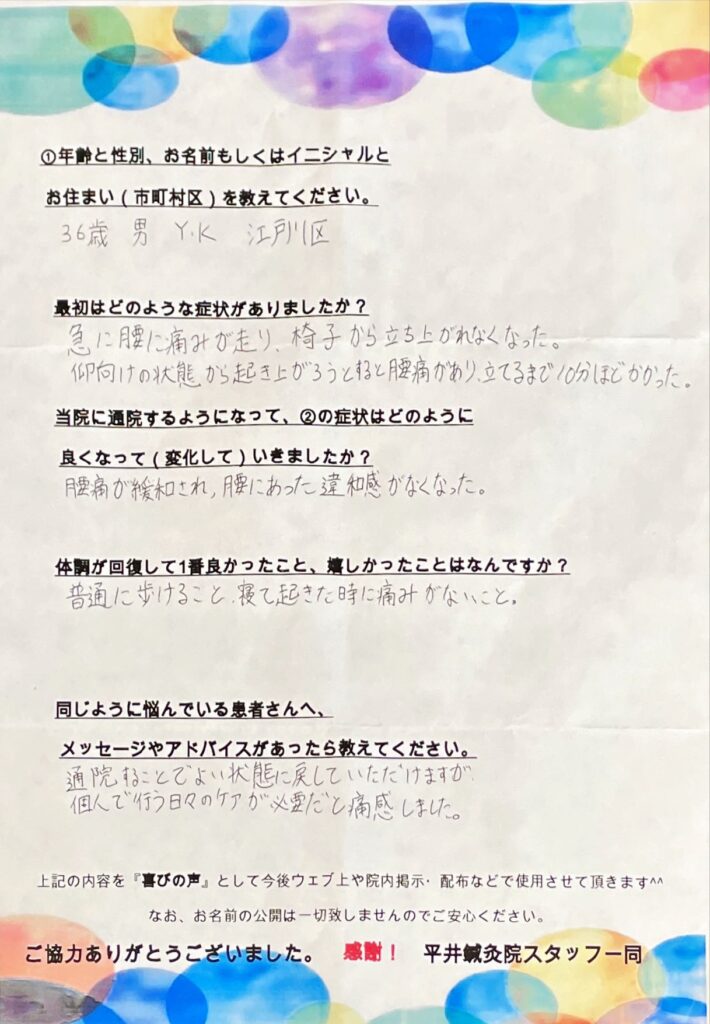 ①年齢と性別、お名前もしくはイニシャルと
お住まい(市町村区)を教えてください。
36歳 男 Y.K 江戸川区
最初はどのような症状がありましたか？
急に腰に痛みが走り、椅子から立ち上がれなくなった。
仰向けの状態から起き上がろうとすると腰痛があり、立てるまで10分ほどかかった。
当院に通院するようになって、②の症状はどのように
良くなって(変化して)いきましたか？
腰痛が緩和され、腰にあった違和感がなくなった。
体調が回復して1番良かったこと、嬉しかったことはなんですか？
普通に歩けること、寝て起きた時に痛みがないこと。
同じように悩んでいる患者さんへ、
メッセージやアドバイスがあったら教えてください。
通院することでよい状態に戻していただけますが、
個人で行う日々のケアが必要だと痛感しました。
上記の内容を『喜びの声』として今後ウェブ上や院内掲示・配布などで使用させて頂きます^^
なお、お名前の公開は一切致しませんのでご安心ください。
ご協力ありがとうございました。 感謝！ 平井鍼灸院スタッフ一同